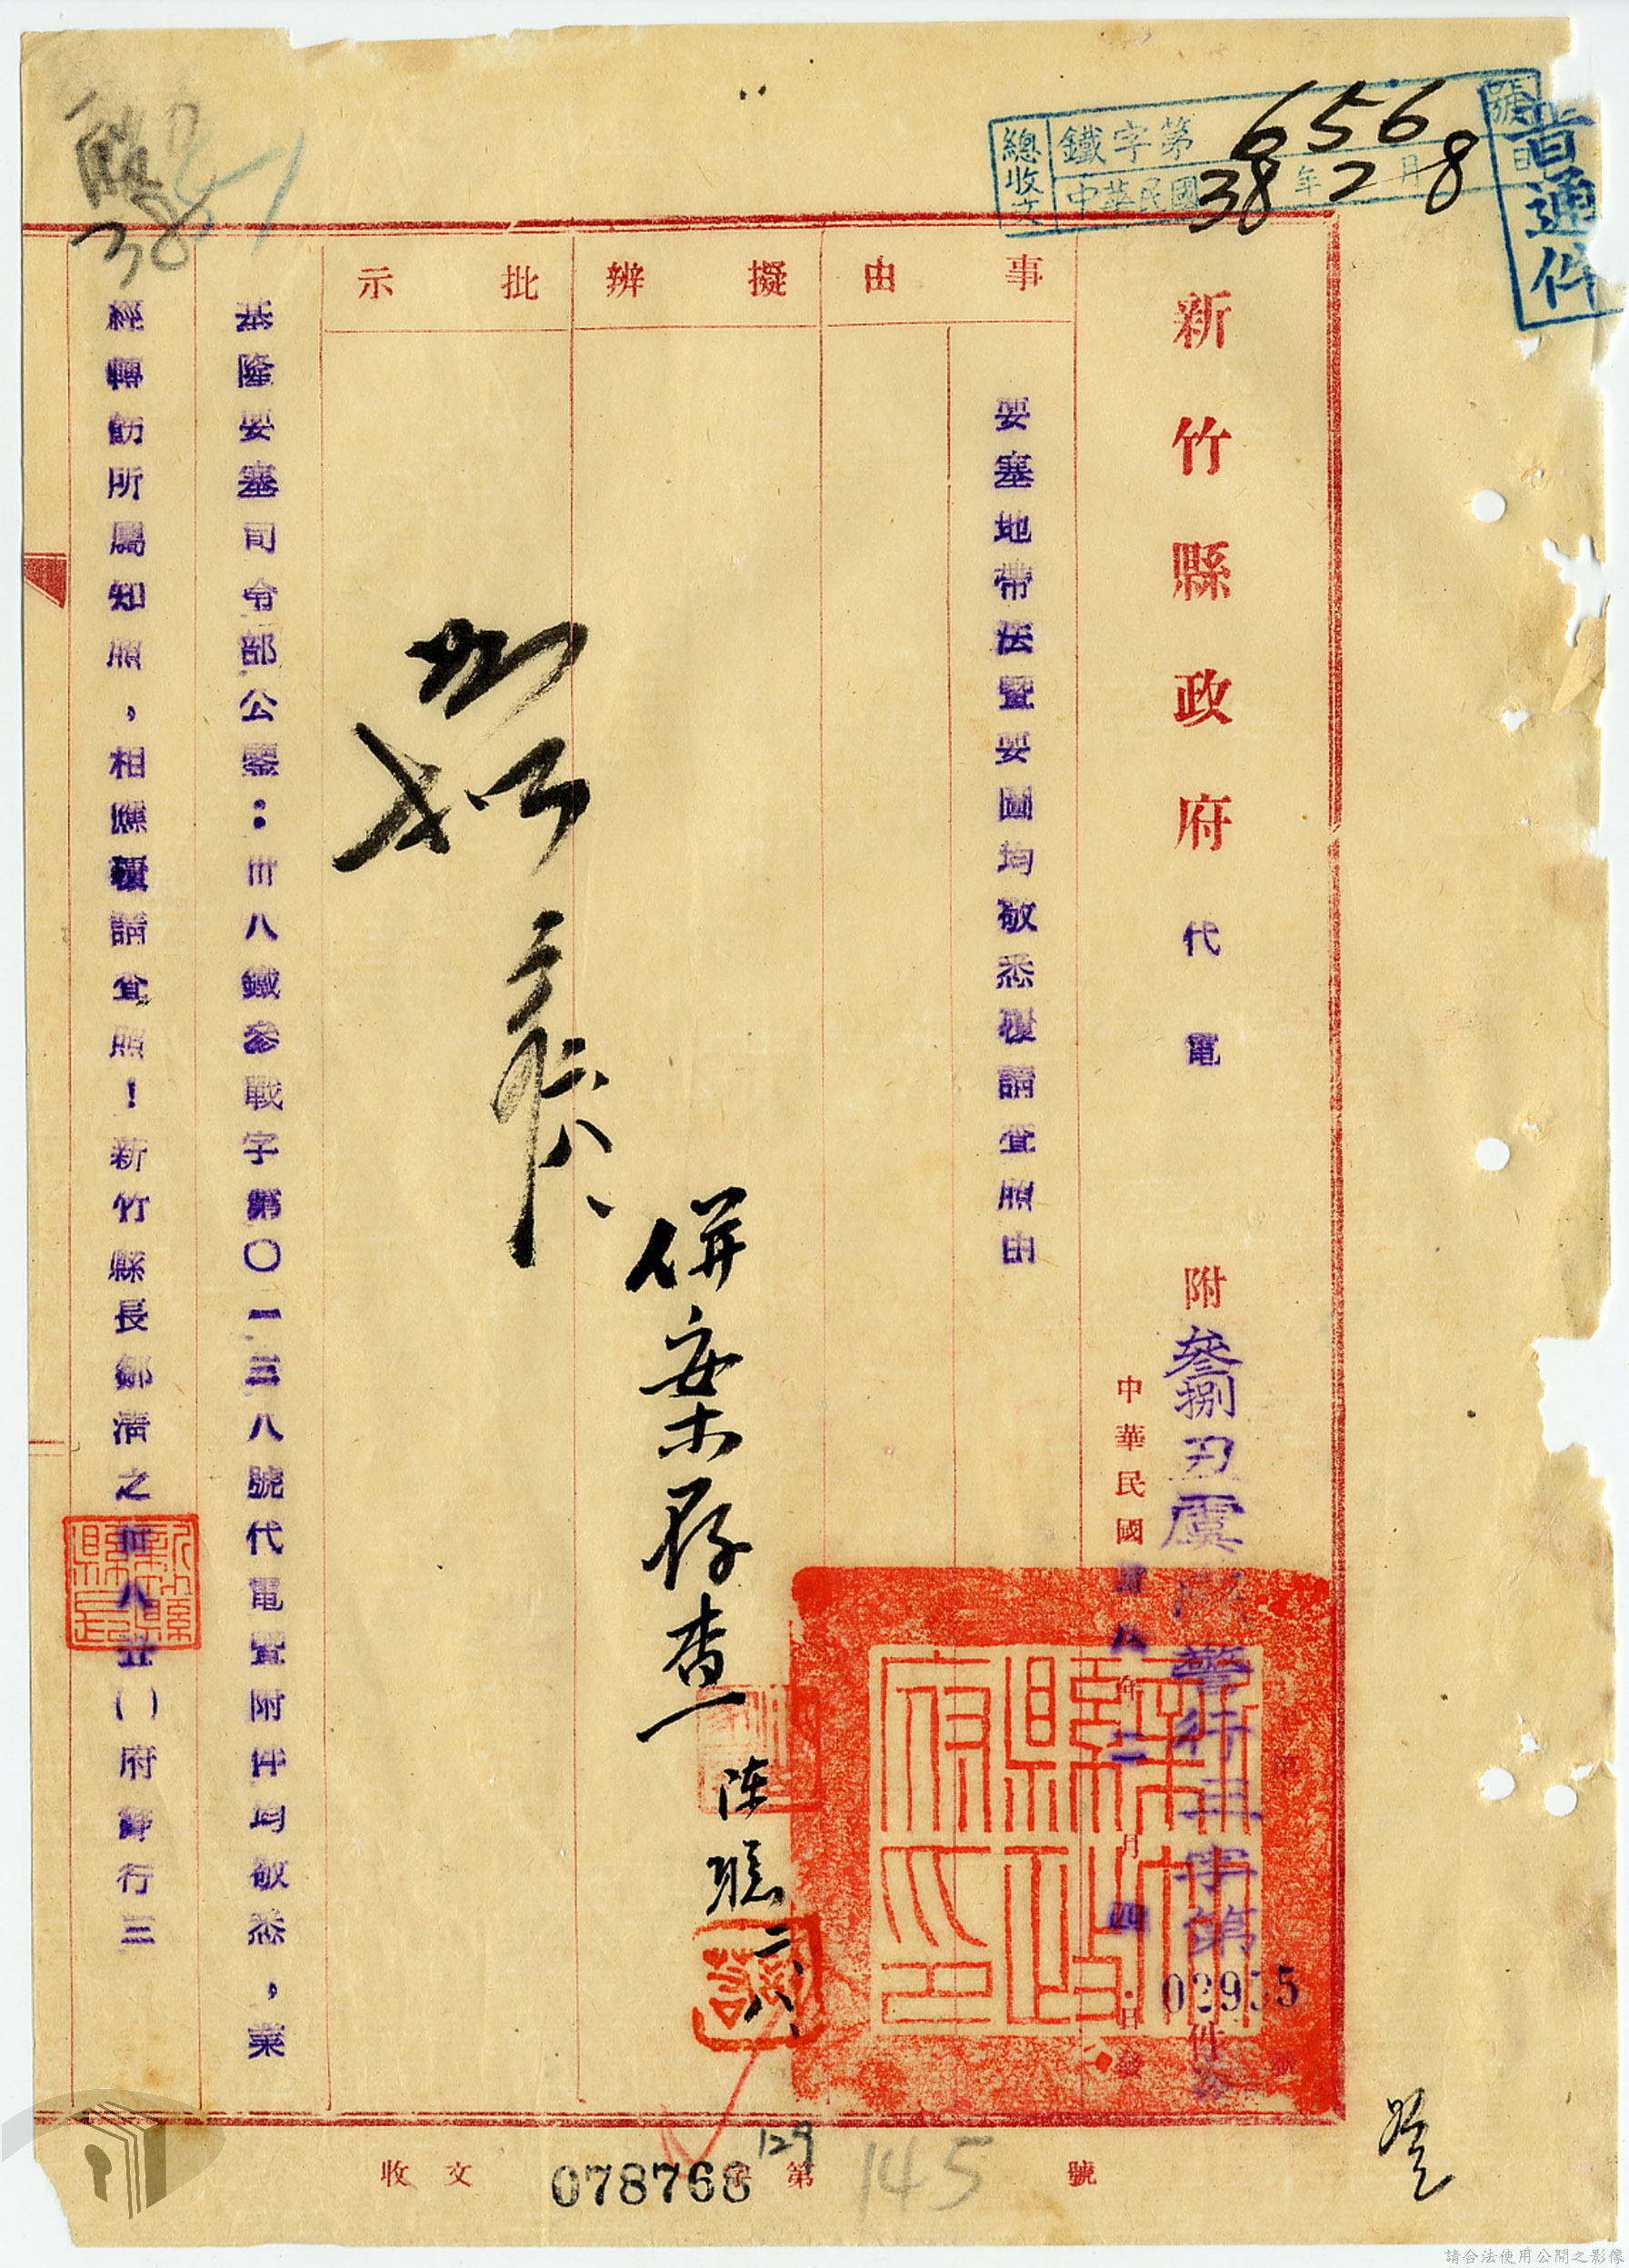 普通件
總收文
鐵字第656號
中華民國38年2月8日
新竹縣政府代電
附件
參捌丑虞
警行三字第
中華民國卅八年二月四日發
事由
擬辦
批示
要塞地帶法暨要圖均敬悉覆請查照由
併案存查
陈聪
二、八、
如
基隆要塞司令部公鑒：卅八鐵參戰字第〇一三八號代電暨附件均敬悉，業
經轉飭所屬知照，相應覆請查照！新竹縣長鄒清之卅八丑（）府警行三
新竹縣政府印
38
收文
078768
第
號
129
145
請合法使用公開之影像